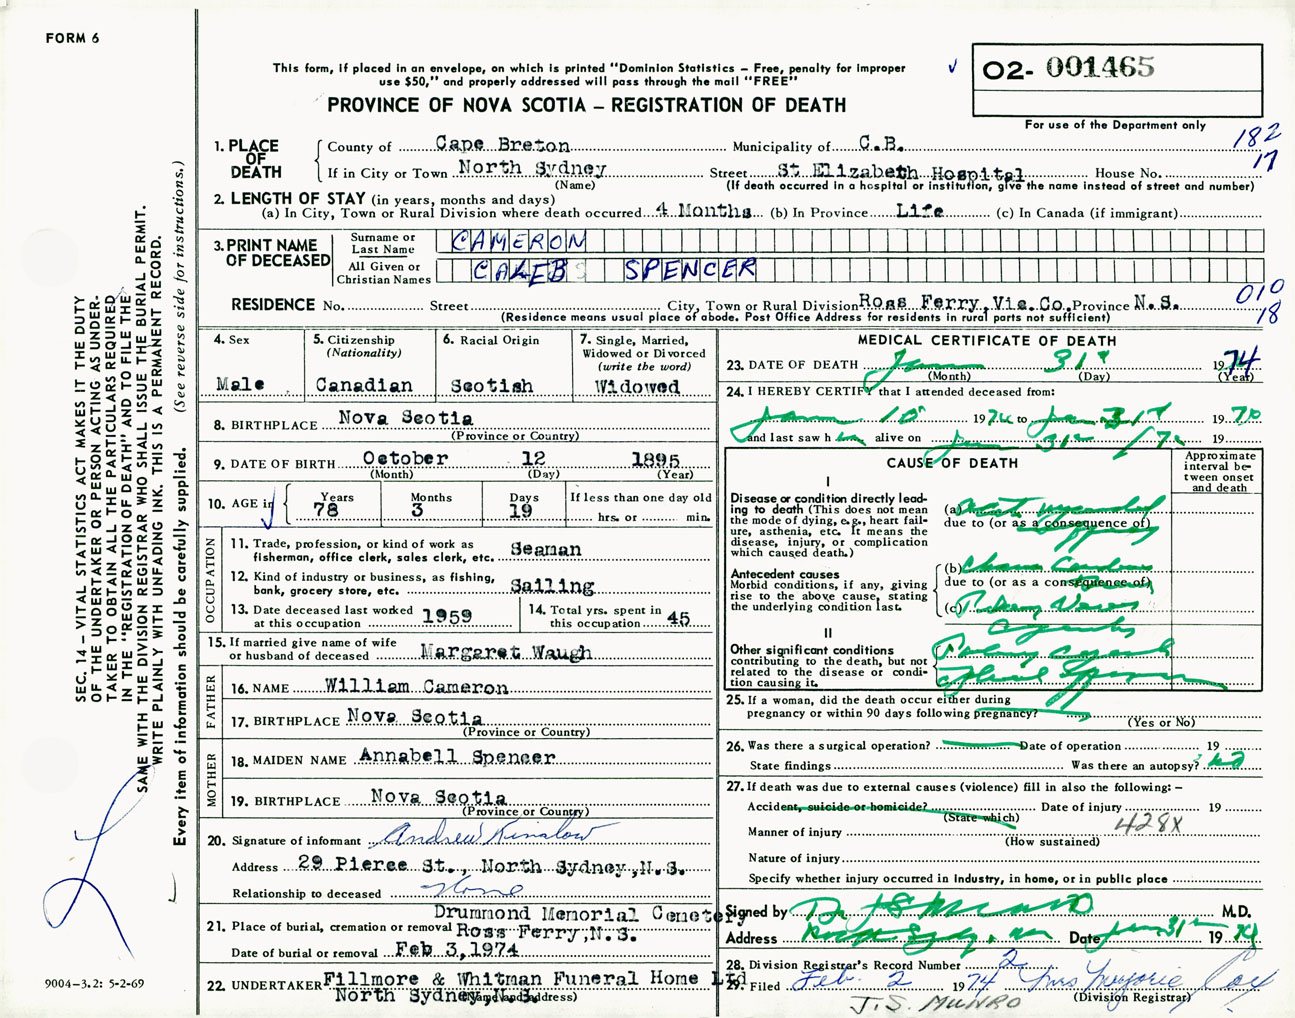 FORM 6
This form, if placed in an envelope, on which is printed "Dominion Statistics – Free, penalty for improper
use $50," and properly addressed will pass through the mail "FREE"
PROVINCE OF NOVA SCOTIA – REGISTRATION OF DEATH
O2- 001465
For use of the Department only
182
17
1. PLACE OF DEATH
County of Cape Breton Municipality of C.B.
If in City or Town North Sydney Street St Elizabeth Hospital House No.
(Name) (If death occurred in a hospital or institution, give the name instead of street and number)
2. LENGTH OF STAY (in years, months and days)
(a) In City, Town or Rural Division where death occurred 4 Months (b) In Province Life (c) In Canada (if immigrant)
3. PRINT NAME OF DECEASED
Surname or Last Name CAMERON
All Given or Christian Names CALEB SPENCER
RESIDENCE No. Street City, Town or Rural Division Ross Ferry, Vic. Co, Province N.S.
(Residence means usual place of abode. Post Office Address for residents in rural parts not sufficient)
010
18
4. Sex Male
5. Citizenship (Nationality) Canadian
6. Racial Origin Scotish
7. Single, Married, Widowed or Divorced (write the word) Widowed
8. BIRTHPLACE Nova Scotia
(Province or Country)
9. DATE OF BIRTH October 12 1895
(Month) (Day) (Year)
10. AGE in Years 78 Months 3 Days 19 If less than one day old
hrs. or min.
OCCUPATION
11. Trade, profession, or kind of work as
fisherman, office clerk, sales clerk, etc. Seaman
12. Kind of industry or business, as fishing,
bank, grocery store, etc. Sailing
13. Date deceased last worked
at this occupation 1959
14. Total yrs. spent in
this occupation 45
15. If married give name of wife
or husband of deceased Margaret Waugh
FATHER
16. NAME William Cameron
17. BIRTHPLACE Nova Scotia
(Province or Country)
MOTHER
18. MAIDEN NAME Annabell Spencer
19. BIRTHPLACE Nova Scotia
(Province or Country)
20. Signature of informant Andrew Kinslow
Address 29 Pierce St., North Sydney, N.S.
Relationship to deceased None
21. Place of burial, cremation or removal Drummond Memorial Cemetery
Ross Ferry, N.S.
Date of burial or removal Feb 3, 1974
22. UNDERTAKER Fillmore & Whitman Funeral Home Ltd
North Sydney, N.S.
(Name and address)
MEDICAL CERTIFICATE OF DEATH
23. DATE OF DEATH Jan 31st 1974
(Month) (Day) (Year)
24. I HEREBY CERTIFY that I attended deceased from:
19 to 19
and last saw h alive on 19
CAUSE OF DEATH
Approximate interval between onset and death
I
Disease or condition directly lead-
ing to death (This does not mean
the mode of dying, e.g., heart fail-
ure, asthenia, etc. It means the
disease, injury, or complication
which caused death.)
(a)
due to (or as a consequence of)
Antecedent causes
Morbid conditions, if any, giving
rise to the above cause, stating
the underlying condition last.
(b)
due to (or as a consequence of)
(c)
II
Other significant conditions
contributing to the death, but not
related to the disease or condi-
tion causing it.
25. If a woman, did the death occur either during
pregnancy or within 90 days following pregnancy?
(Yes or No)
26. Was there a surgical operation? Date of operation 19
State findings Was there an autopsy? no
27. If death was due to external causes (violence) fill in also the following: –
Accident, suicide or homicide? Date of injury 19
(State which)
428X
Manner of injury
(How sustained)
Nature of injury
Specify whether injury occurred in industry, in home, or in public place
Signed by Dr J S Munro M.D.
Address Date Jan 31st 1974
28. Division Registrar's Record Number 2
29. Filed Feb. 2 1974 Mrs Marjorie Cox
(Division Registrar)
J.S. MUNRO
SEC. 14 – VITAL STATISTICS ACT MAKES IT THE DUTY
OF THE UNDERTAKER OR PERSON ACTING AS UNDER-
TAKER TO OBTAIN ALL THE PARTICULARS REQUIRED
IN THE "REGISTRATION OF DEATH" AND TO FILE THE
SAME WITH THE DIVISION REGISTRAR WHO SHALL ISSUE THE BURIAL PERMIT.
WRITE PLAINLY WITH UNFADING INK. THIS IS A PERMANENT RECORD.
Every item of information should be carefully supplied. (See reverse side for instructions.)
9004–3.2: 5-2-69